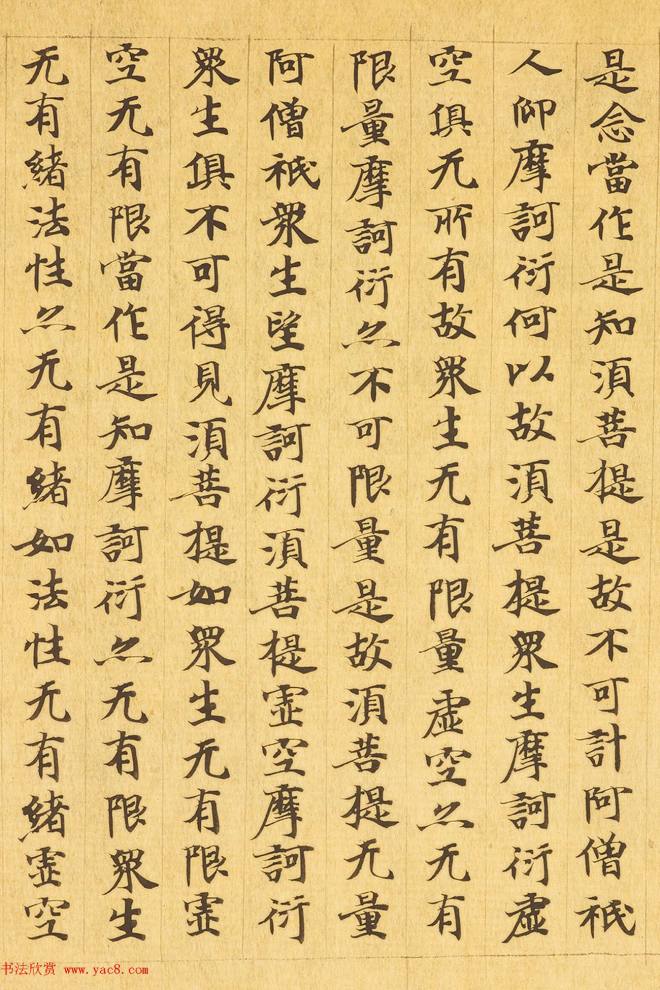 是念當作是知須菩提是故不可計阿僧祇
人仰摩訶衍何以故須菩提衆生摩訶衍虛
空俱无所有故衆生无有限量虛空亦无有
限量摩訶衍亦不可限量是故須菩提无量
阿僧祇衆生望摩訶衍須菩提虛空摩訶衍
衆生俱不可得見須菩提如衆生无有限虛
空无有限當作是知摩訶衍亦无有限衆生
无有緒法性亦无有緒如法性无有緒虛空
书法欣赏 www.yac8.com